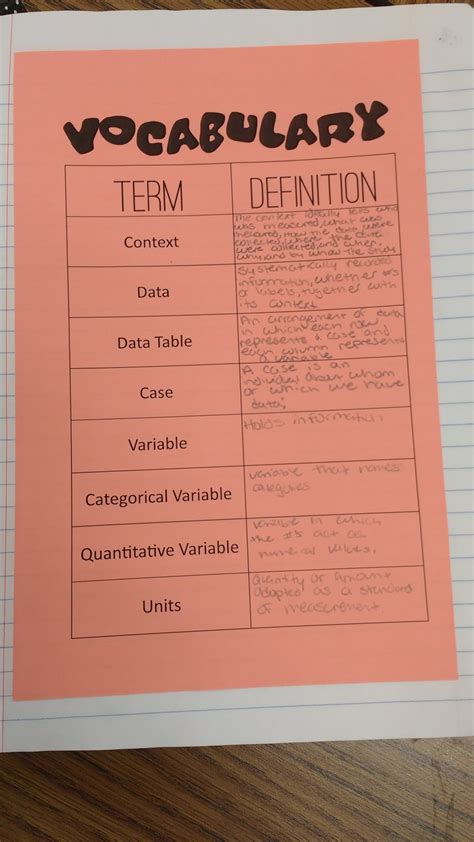 VOCABULARY
TERM
DEFINITION
Context
The context ideally tells who
was measured, what was
measured, how the data were
collected, where the data
were collected, and when,
why, and by whom the study
Data
Systematically recorded
information, whether #s
or labels, together with
its context
Data Table
An arrangement of data
in which each row
represents a case and
each column represents
a variable
Case
A case is an
individual about whom
or which we have
data.
Variable
Holds information
Categorical Variable
variable that names
categories
Quantitative Variable
variable in which
the #s act as
numerical values.
Units
Quantity or Amount
adopted as a standard
of measurement